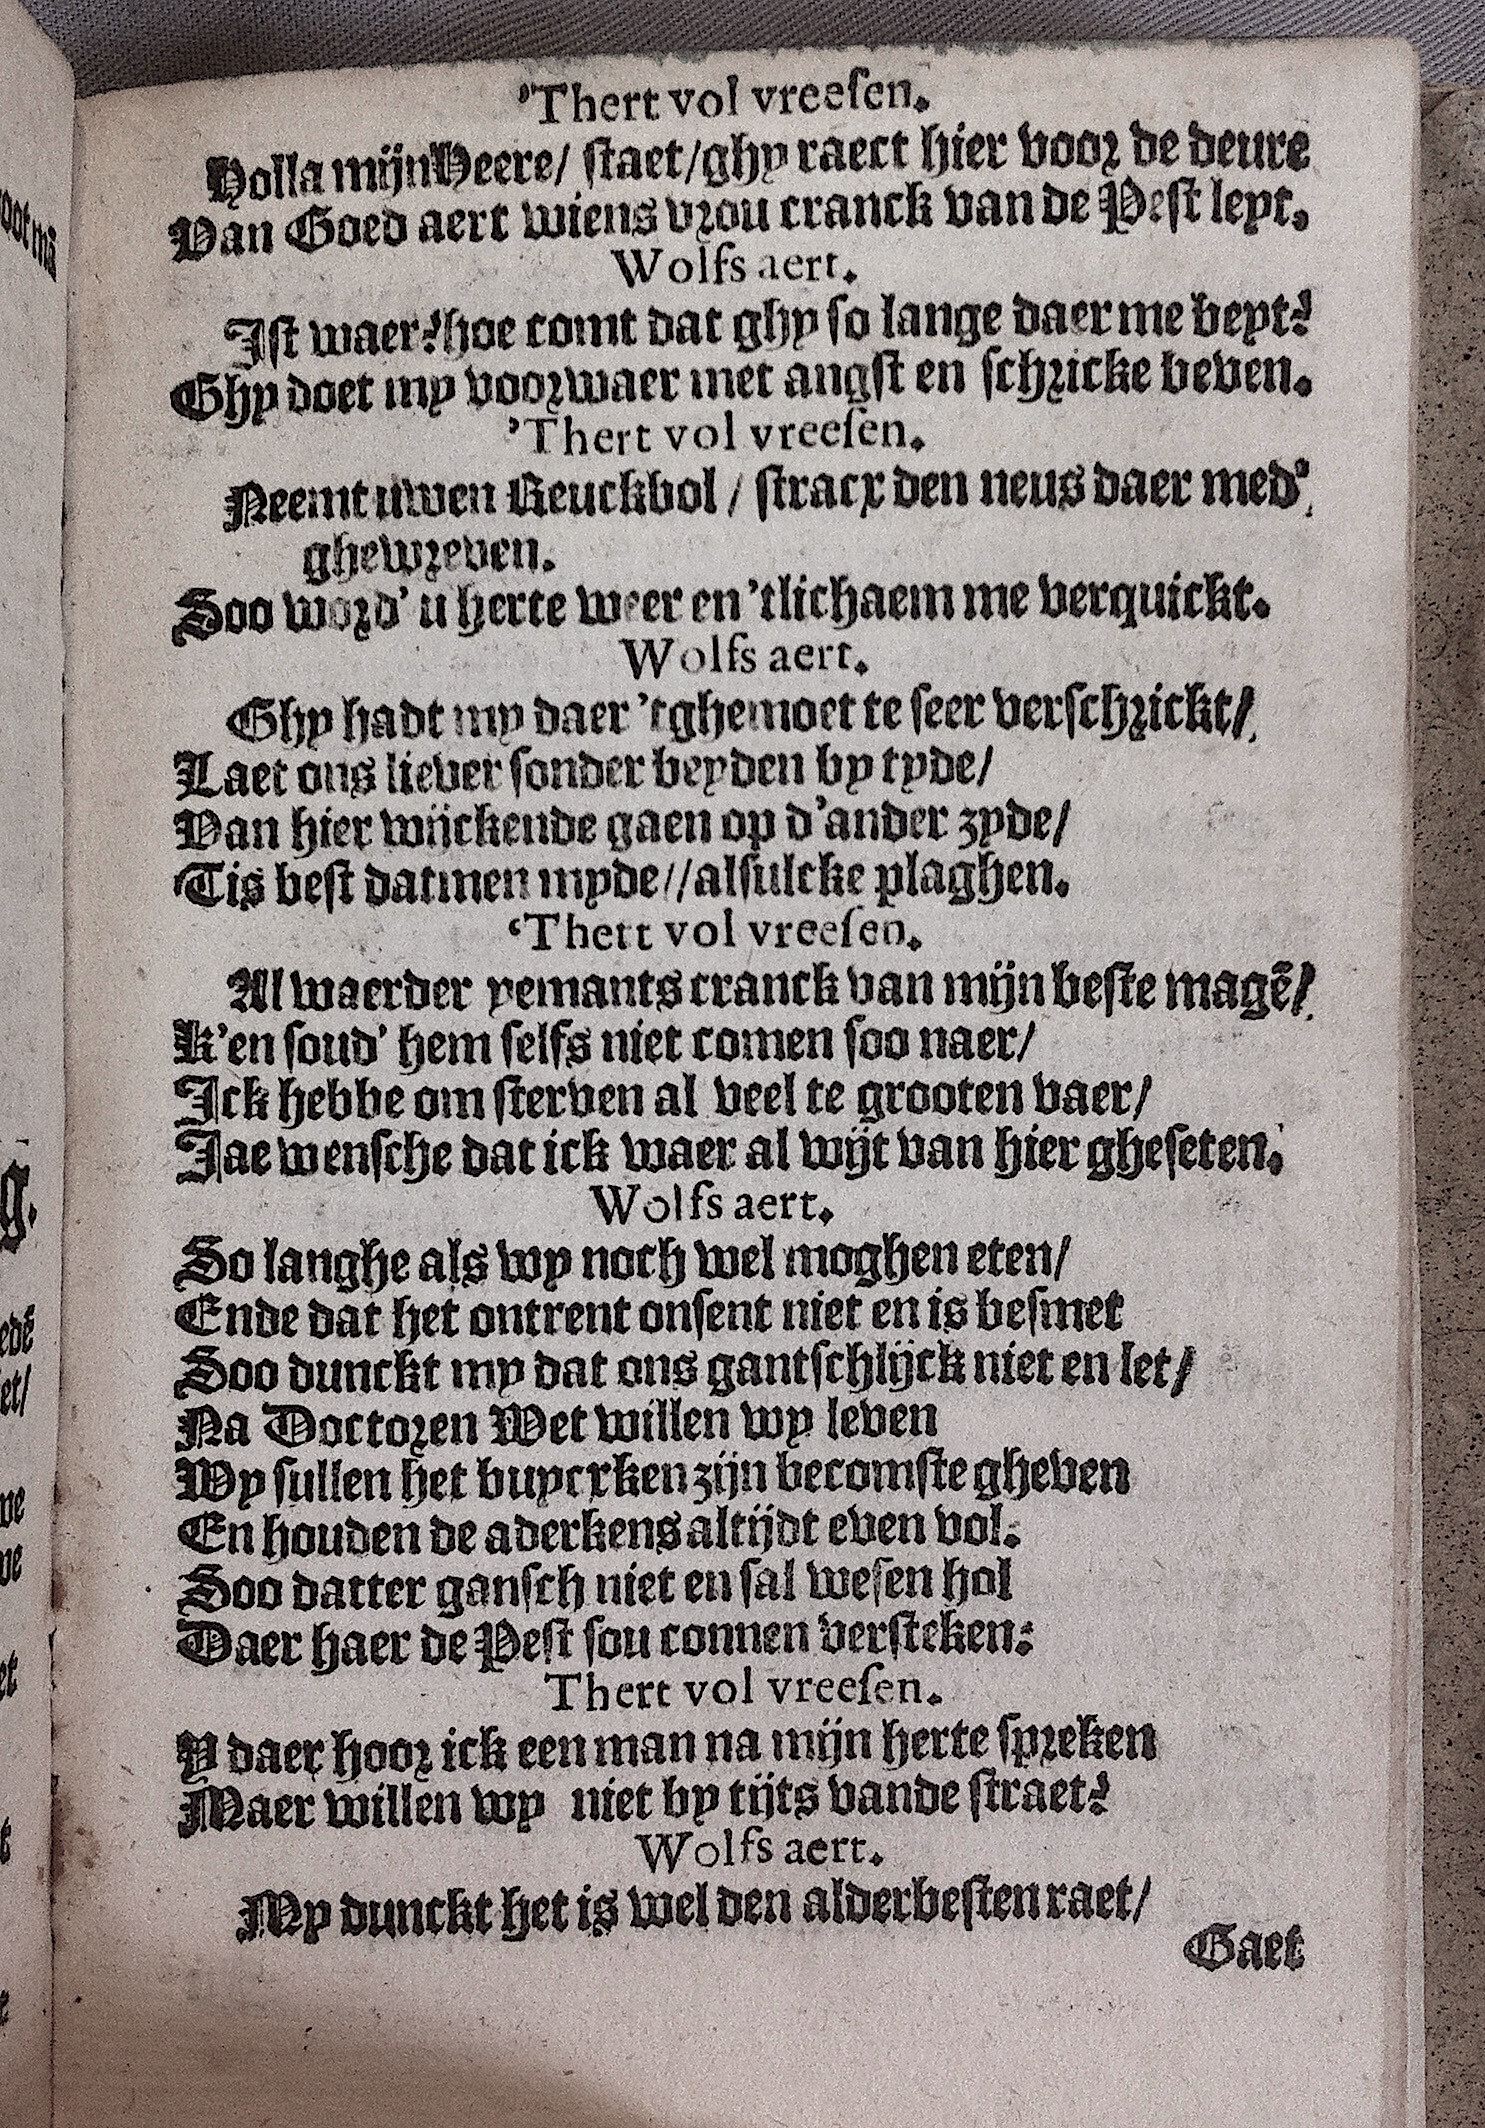 'Thert vol vreesen.
Holla mijn Heere/ staet/ghy raect hier voor de deure
Van Goed aert wiens vrou cranck van de Pest leyt.
Wolfs aert.
Ist waer? hoe comt dat ghy so lange daer me beyt?
Ghy doet my voorwaer met angst en schricke beven.
'Thert vol vreesen.
Neemt uwen Reuckbol / stracx den neus daer med'
ghewreven.
Soo word' u herte weer en 'tlichaem me verquickt.
Wolfs aert.
Ghy hadt my daer 'tghemoet te seer verschrickt/
Laet ons liever sonder beyden by tyde/
Van hier wijckende gaen op d'ander zyde/
'Tis best datmen myde//alsulcke plaghen.
'Thert vol vreesen.
Al waerder yemants cranck van mijn beste magē/
K'en soud' hem selfs niet comen soo naer/
Ick hebbe om sterven al veel te grooten vaer/
Jae wensche dat ick waer al wijt van hier gheseten.
Wolfs aert.
So langhe als wy noch wel moghen eten/
Ende dat het ontrent onsent niet en is besmet
Soo dunckt my dat ons gantschlijck niet en let/
Na Doctoren Wet willen wy leven
Wy sullen het buycxken zijn becomste gheven
En houden de aderkens altijdt even vol.
Soo datter gansch niet en sal wesen hol
Daer haer de Pest sou connen versteken:
Thert vol vreesen.
Y daer hoor ick een man na mijn herte spreken
Maer willen wy niet by tijts vande straet?
Wolfs aert.
My dunckt het is wel den alderbesten raet/
Gaet